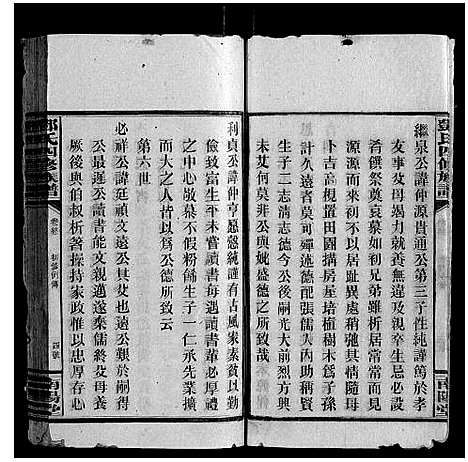 鄧氏四修族譜
南陽堂
繼泉公諱仲源貴通公第三子性純謹篤於孝
友事父母竭力就養無違及親卒生忌必設
肴饌祭奠哀慕如初兄弟雖析居常常而見
源源而來初不以居址異處稍弛其情隨母
卜吉高梘置田園搆房屋培植樹木為子孫
計久遠者莫可殫述德配張儒人內助稱賢
生子二志清志德今公後嗣光大前烈方興
未艾何莫非公與嫓盛德之所致哉
利貞公諱仲亨愿慤純謹有古風家素貧以勤
儉致富生平未嘗讀書每遇讀書輩必厚禮
之中心敬慕不假粉飾生子一仁承先業擴
而大之人皆以為公德所致云
第六世
必祥公諱廷禎文遠公其父也文遠公艱於嗣得
公最遲公讀書能文親邁遂棄儒終父母喪
厥後與伯叔析著操持家政惟以忠厚
鄧氏四修族譜
南陽堂